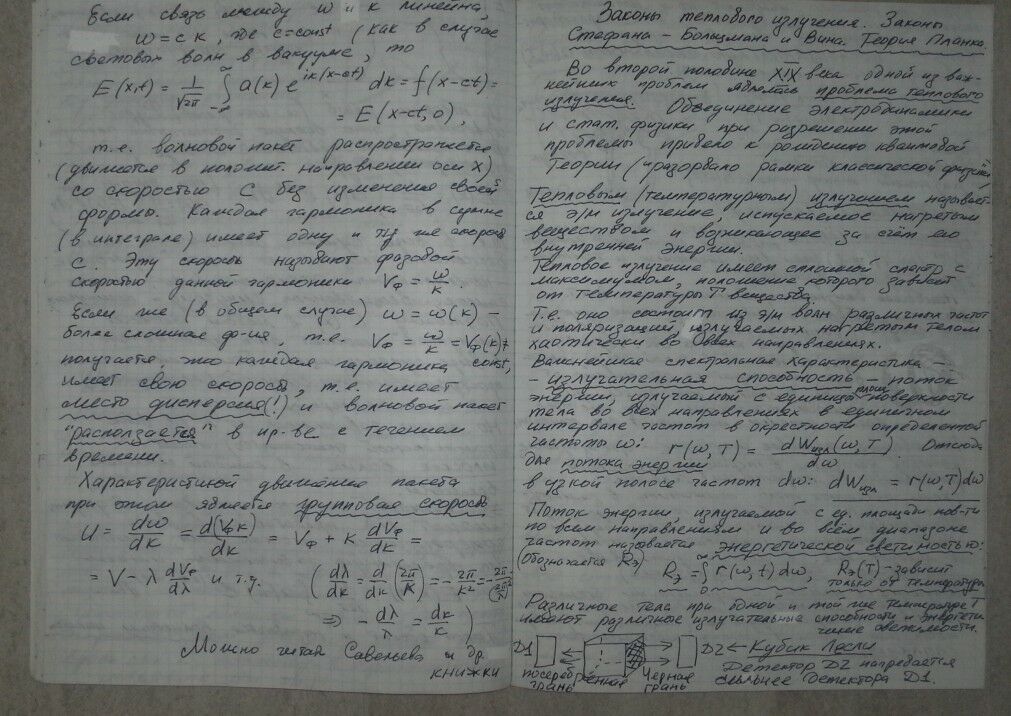 Если связь между ω и k линейна
ω = ck, где c = const (как в случае
световых волн в вакууме, то
E(x,t) = 1/√2π ∫_{-∞}^{∞} a(k) e^{ik(x-ct)} dk = f(x-ct) =
= E(x-ct, 0),
т.е. волновой пакет распространяется
(движется в полож. направлении оси X)
со скоростью C без изменения своей
формы. Каждая гармоника в сумме
(в интеграле) имеет одну и ту же скорость
C. Эту скорость называют фазовой
скоростью данной гармоники Vф = ω/k.
Если же (в общем случае) ω = ω(k) –
более сложная ф-ия, т.е. Vф = ω/k = Vф(k) ≠
получается, что каждая гармоника const,
имеет свою скорость, т.е. имеет
место дисперсия(!) и волновой пакет
"расползается" в пр-ве с течением
времени.
Характеристикой движения пакета
при этом является групповая скорость
U = dω/dk = d(Vф k)/dk = Vф + k dVф/dk =
= V - λ dVф/dλ и т.д. (dλ/dk = d/dk (2π/k) = -2π/k² = -2π/(2π/λ)²
⇒ -dλ/λ = dk/k)
Можно читать Савельева и др.
книжки
Законы теплового излучения. Законы
Стефана – Больцмана и Вина. Теория Планка.
Во второй половине XIX века одной из важ-
нейших проблем являлась проблема теплового
излучения. Объединение электродинамики
и стат. физики при разрешении этой
проблемы привело к рождению квантовой
теории (и разорвало рамки классической физики)
Тепловым (температурным) излучением называет-
ся э/м излучение, испускаемое нагретым
веществом и возникающее за счёт его
внутренней энергии.
Тепловое излучение имеет сплошной спектр с
максимумом, положение которого зависит
от температуры T вещества.
Т.е. оно состоит из э/м волн различных частот
и поляризаций, излучаемых нагретым телом
хаотически во всех направлениях.
Важнейшая спектральная характеристика –
- излучательная способность – поток
энергии, излучаемый с единицы площ. поверхности
тела во всех направлениях в единичном
интервале частот в окрестности определенной
частоты ω: r(ω,T) = dWизл(ω,T)/dω. Отсюда
для потока энергии
в узкой полосе частот dω: dWизл = r(ω,T)dω
Поток энергии, излучаемой с ед. площади пов-ти
по всем направлениям и во всём диапазоне
частот называется энергетической светимостью:
(Обозначается Rэ) Rэ = ∫_0^∞ r(ω,t) dω, Rэ(T) – зависит
только от температуры
Различные тела при одной и той же температуре T
имеют различные излучательные способности и энергети-
ческие светимости.
D1 D2 ← Кубик Лесли
посеребренная грань Черная грань
Детектор D2 нагревается
сильнее детектора D1.